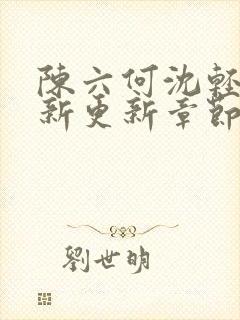 陳六何沈輕
新更新章節
劉世明